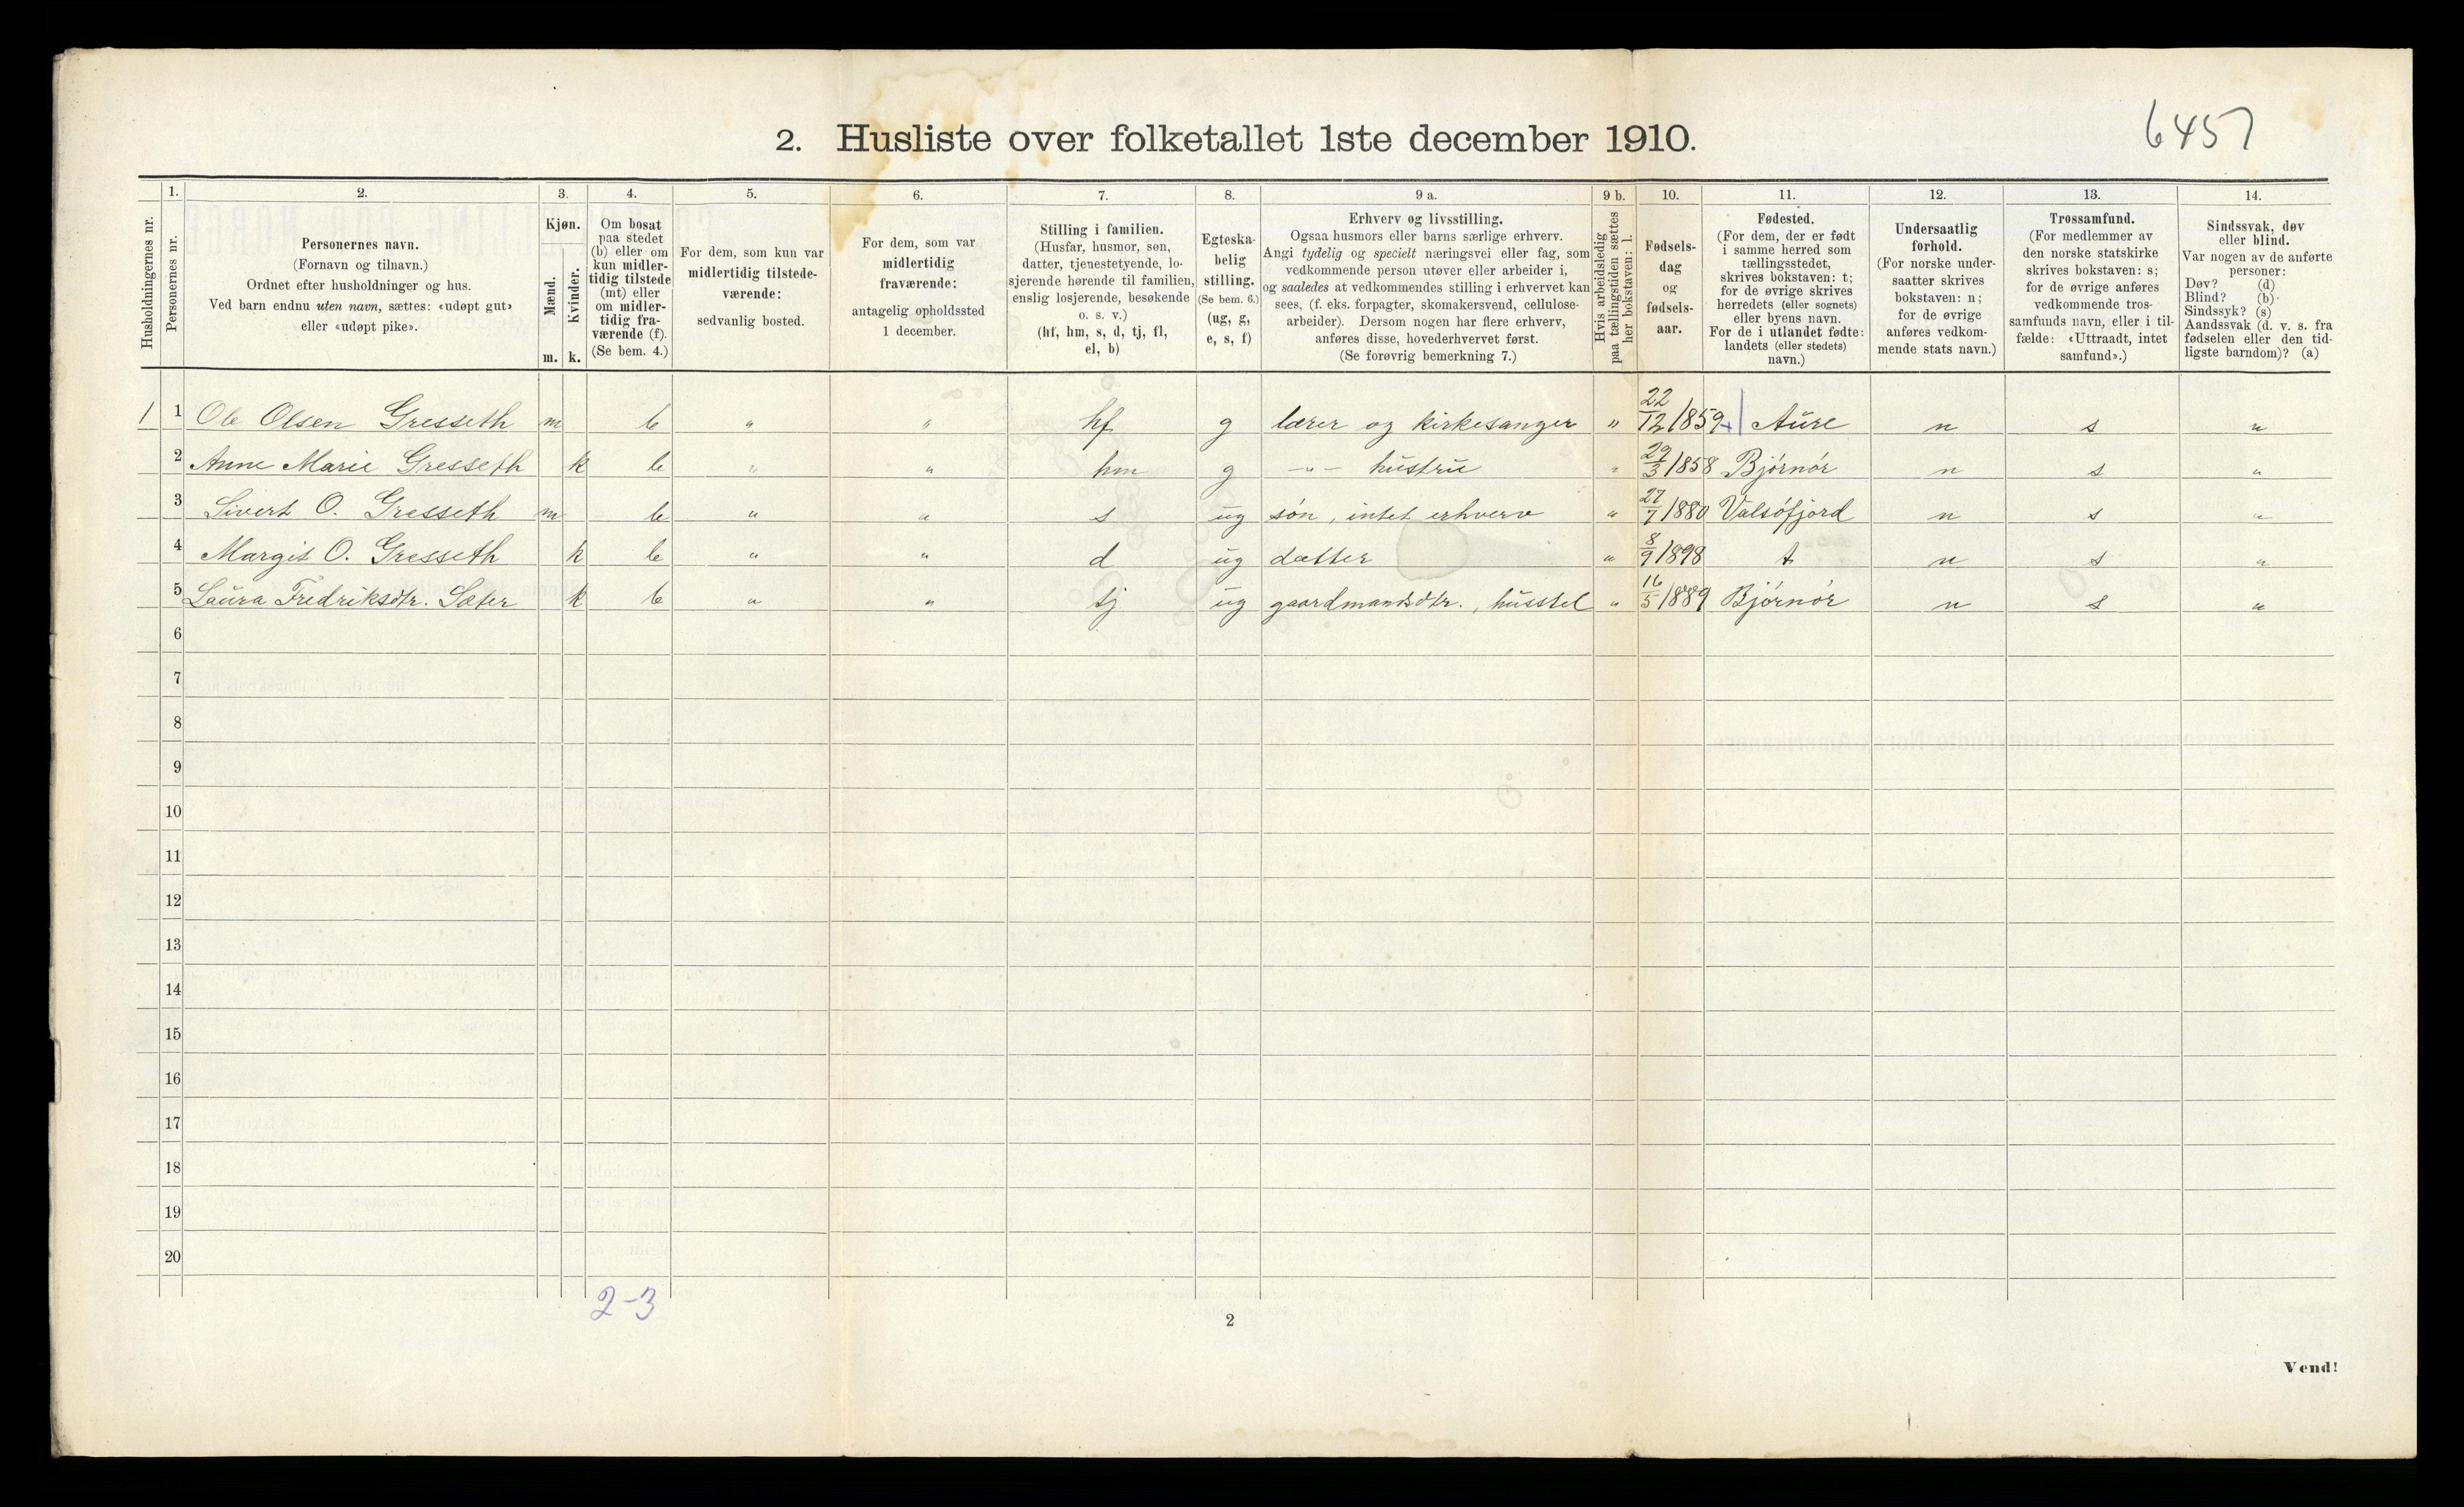 6457
2. Husliste over folketallet 1ste december 1910.
Husholdningernes nr.
1. Personernes nr.
2. Personernes navn. (Fornavn og tilnavn.) Ordnet efter husholdninger og hus. Ved barn endnu uten navn, sættes: «udøpt gut» eller «udøpt pike».
3. Kjøn. Mænd. m. Kvinder. k.
4. Om bosat paa stedet (b) eller om kun midlertidig tilstede (mt) eller om midlertidig fraværende (f). (Se bem. 4.)
5. For dem, som kun var midlertidig tilstedeværende: sedvanlig bosted.
6. For dem, som var midlertidig fraværende: antagelig opholdssted 1 december.
7. Stilling i familien. (Husfar, husmor, søn, datter, tjenestetyende, losjerende hørende til familien, enslig losjerende, besøkende o. s. v.) (hf, hm, s, d, tj, fl, el, b)
8. Egteskabelig stilling. (Se bem. 6.) (ug, g, e, s, f)
9 a. Erhverv og livsstilling. Ogsaa husmors eller barns særlige erhverv. Angi tydelig og specielt næringsvei eller fag, som vedkommende person utøver eller arbeider i, og saaledes at vedkommendes stilling i erhvervet kan sees, (f. eks. forpagter, skomakersvend, cellulosearbeider). Dersom nogen har flere erhverv, anføres disse, hovederhvervet først. (Se forøvrig bemerkning 7.)
9 b. Hvis arbeidsledig paa tællingstiden sættes her bokstaven: l.
10. Fødselsdag og fødselsaar.
11. Fødested. (For dem, der er født i samme herred som tællingsstedet, skrives bokstaven: t; for de øvrige skrives herredets (eller sognets) eller byens navn. For de i utlandet fødte: landets (eller stedets) navn.)
12. Undersaatlig forhold. (For norske undersaatter skrives bokstaven: n; for de øvrige anføres vedkommende stats navn.)
13. Trossamfund. (For medlemmer av den norske statskirke skrives bokstaven: s; for de øvrige anføres vedkommende trossamfunds navn, eller i tilfælde: «Uttraadt, intet samfund».)
14. Sindssvak, døv eller blind. Var nogen av de anførte personer: Døv? (d) Blind? (b) Sindssyk? (s) Aandssvak (d. v. s. fra fødselen eller den tidligste barndom)? (a)
1 1 Ole Olsen Gresseth m b " " hf g lærer og kirkesanger " 22/12 1859 Aure n s "
2 Anne Marie Gresseth k b " " hm g -"- hustru " 29/3 1858 Bjórnór n s "
3 Sivert O. Gresseth m b " " s ug søn, intet erhverv " 27/7 1880 Valsófjord n s "
4 Margit O. Gresseth k b " " d ug datter " 8/9 1898 t n s "
5 Laura Fredriksdtr. Sæter k b " " tj ug gaardmandsdtr., husstel " 16/5 1889 Bjórnór n s "
6
7
8
9
10
11
12
13
14
15
16
17
18
19
20
2-3
2
Vend!